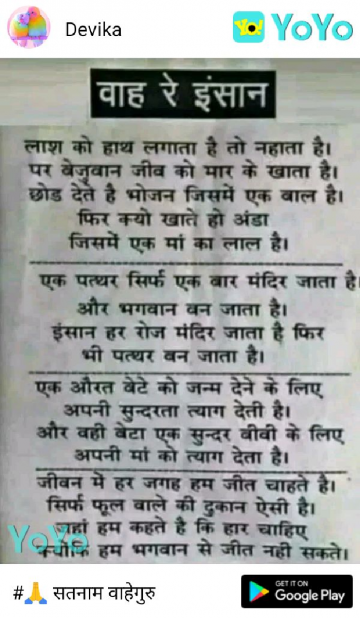 Devika
YoYo
वाह रे इंसान
लाश को हाथ लगाता है तो नहाता है।
पर बेजुवान जीव को मार के खाता है।
छोड देते है भोजन जिसमें एक बाल है।
फिर क्यो खाते हो अंडा
जिसमें एक मां का लाल है।
एक पत्थर सिर्फ एक बार मंदिर जाता है
और भगवान बन जाता है।
इंसान हर रोज मंदिर जाता है फिर
भी पत्थर बन जाता है।
एक औरत बेटे को जन्म देने के लिए
अपनी सुन्दरता त्याग देती है।
और वही बेटा एक सुन्दर बीवी के लिए
अपनी मां को त्याग देता है।
जीवन मे हर जगह हम जीत चाहते है।
सिर्फ फूल वाले की दुकान ऐसी है।
जहां हम कहते है कि हार चाहिए
क्योंकि हम भगवान से जीत नही सकते।
YoYo
#🙏 सतनाम वाहेगुरु
GET IT ON
Google Play